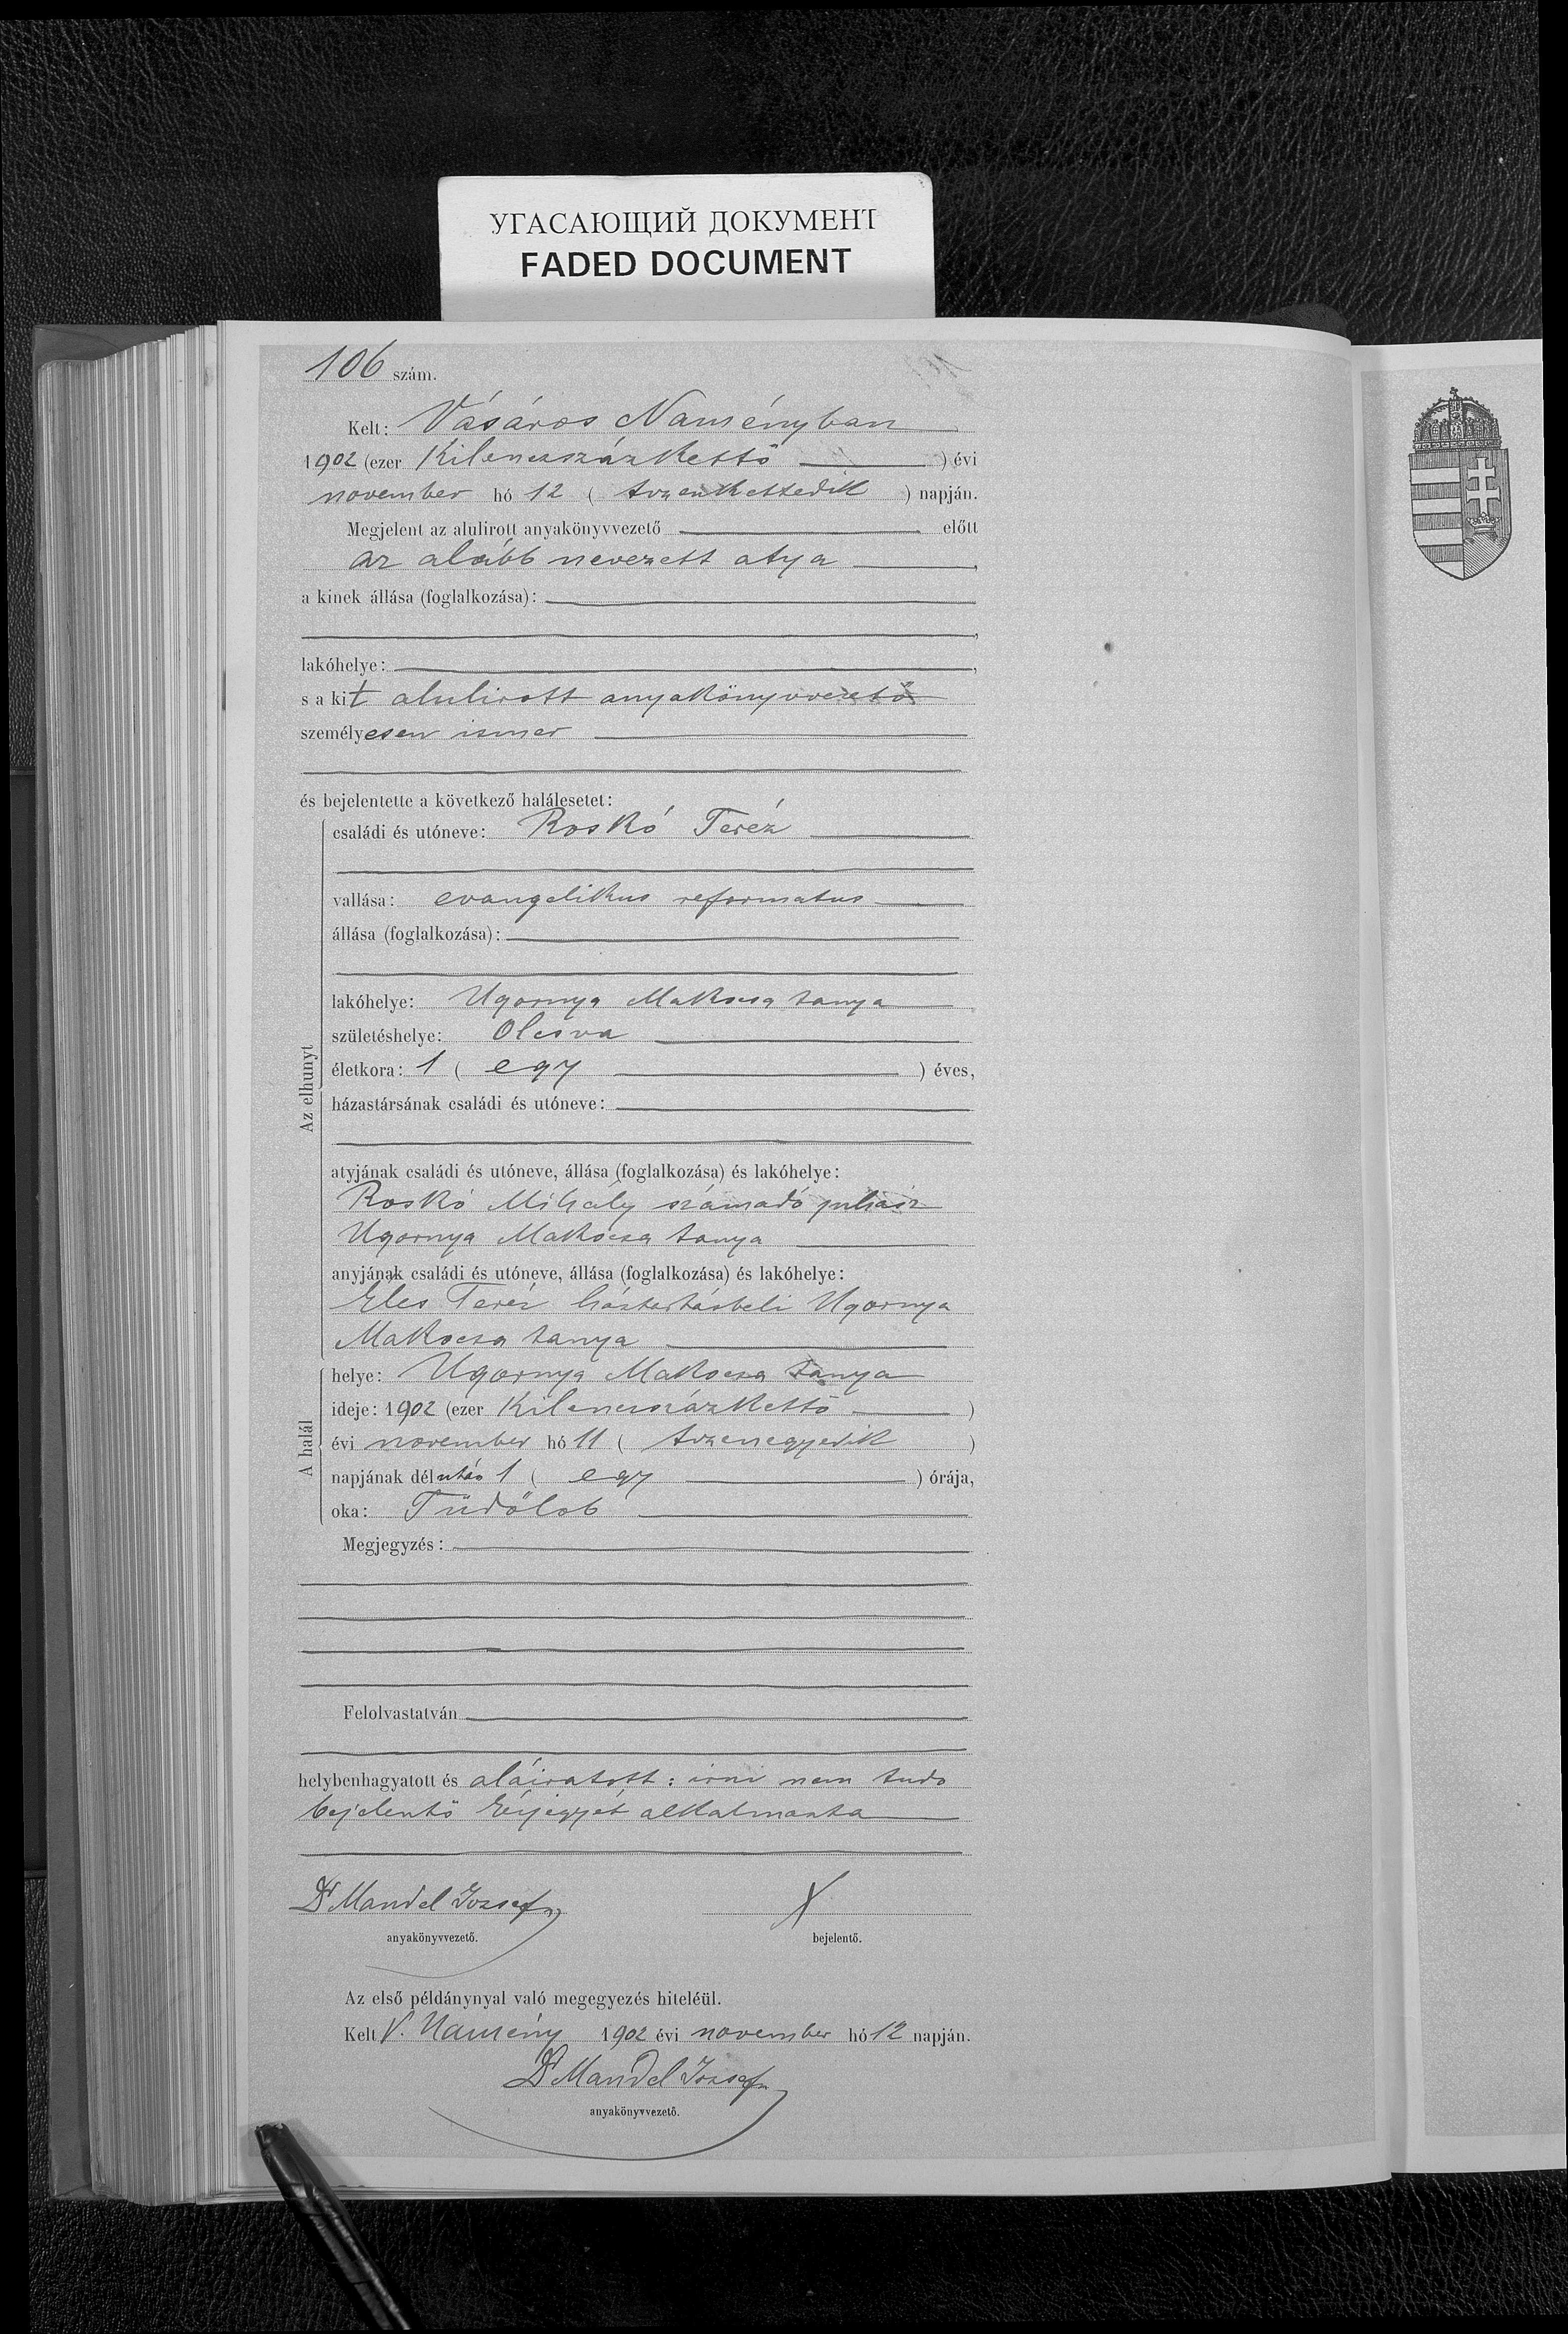 УГАСАЮЩИЙ ДОКУМЕНТ
FADED DOCUMENT
106 szám.
Kelt: Vásáros Naményban
1902 (ezer Kilenczszázkettő ) évi
november hó 12 ( tizenkettedik ) napján.
Megjelent az alulirott anyakönyvvezető előtt
az alább nevezett atya,
a kinek állása (foglalkozása):
lakóhelye:
s a kit alulirott anyakönyvvezető
személyesen ismer
és bejelentette a következő halálesetet:
Az elhunyt
családi és utóneve: Roskó Teréz
vallása: evangelikus reformatus
állása (foglalkozása):
lakóhelye: Ugornya Makocsa tanya
születéshelye: Olcsva
életkora: 1 ( egy ) éves,
házastársának családi és utóneve:
atyjának családi és utóneve, állása (foglalkozása) és lakóhelye:
Roskó Mihály számadó juhász
Ugornya Makocsa tanya
anyjának családi és utóneve, állása (foglalkozása) és lakóhelye:
Éles Teréz háztartásbeli Ugornya
Makocsa tanya
A halál
helye: Ugornya Makocsa tanya
ideje: 1902 (ezer Kilenczszázkettő )
évi november hó 11 ( tizenegyedik )
napjának délután 1 ( egy ) órája,
oka: Tüdőlob
Megjegyzés:
Felolvastatván
helybenhagyatott és aláiratott: irni nem tudo
bejelentő kézjegyét alkalmazta
Dr Mandel Jozsef X
anyakönyvvezető. bejelentő.
Az első példánynyal való megegyezés hiteléül.
Kelt V. Namény 1902 évi november hó 12 napján.
Dr Mandel Jozsef
anyakönyvvezető.